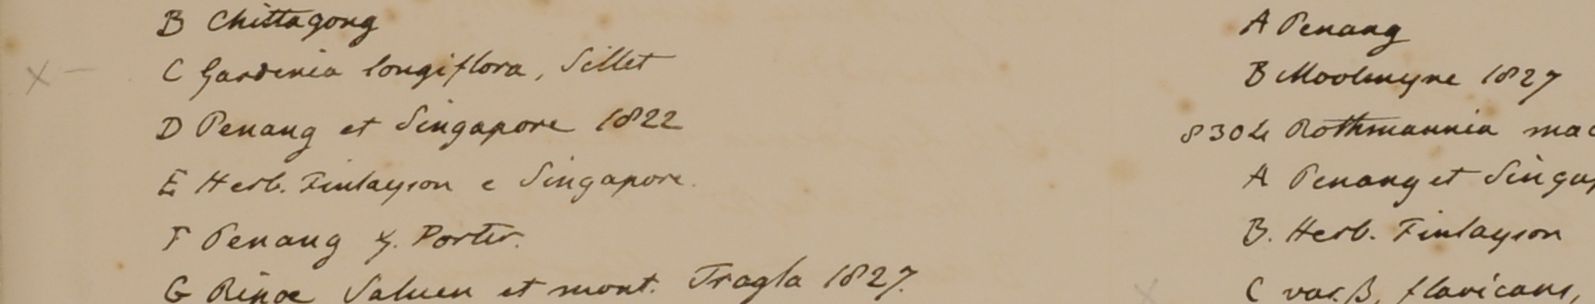 B Chittagong
C Gardenia longiflora, Sillet
D Penang et Singapore 1822
E Herb. Finlayson e Singapore.
F Penang G. Porter.
G Ripoe Saluen et mont. Tragla 1827.
A Penang
B Moolmyne 1827
8304 Rothmannia mac
A Penang et Singap
B. Herb. Finlayson
C var. β flavicans,